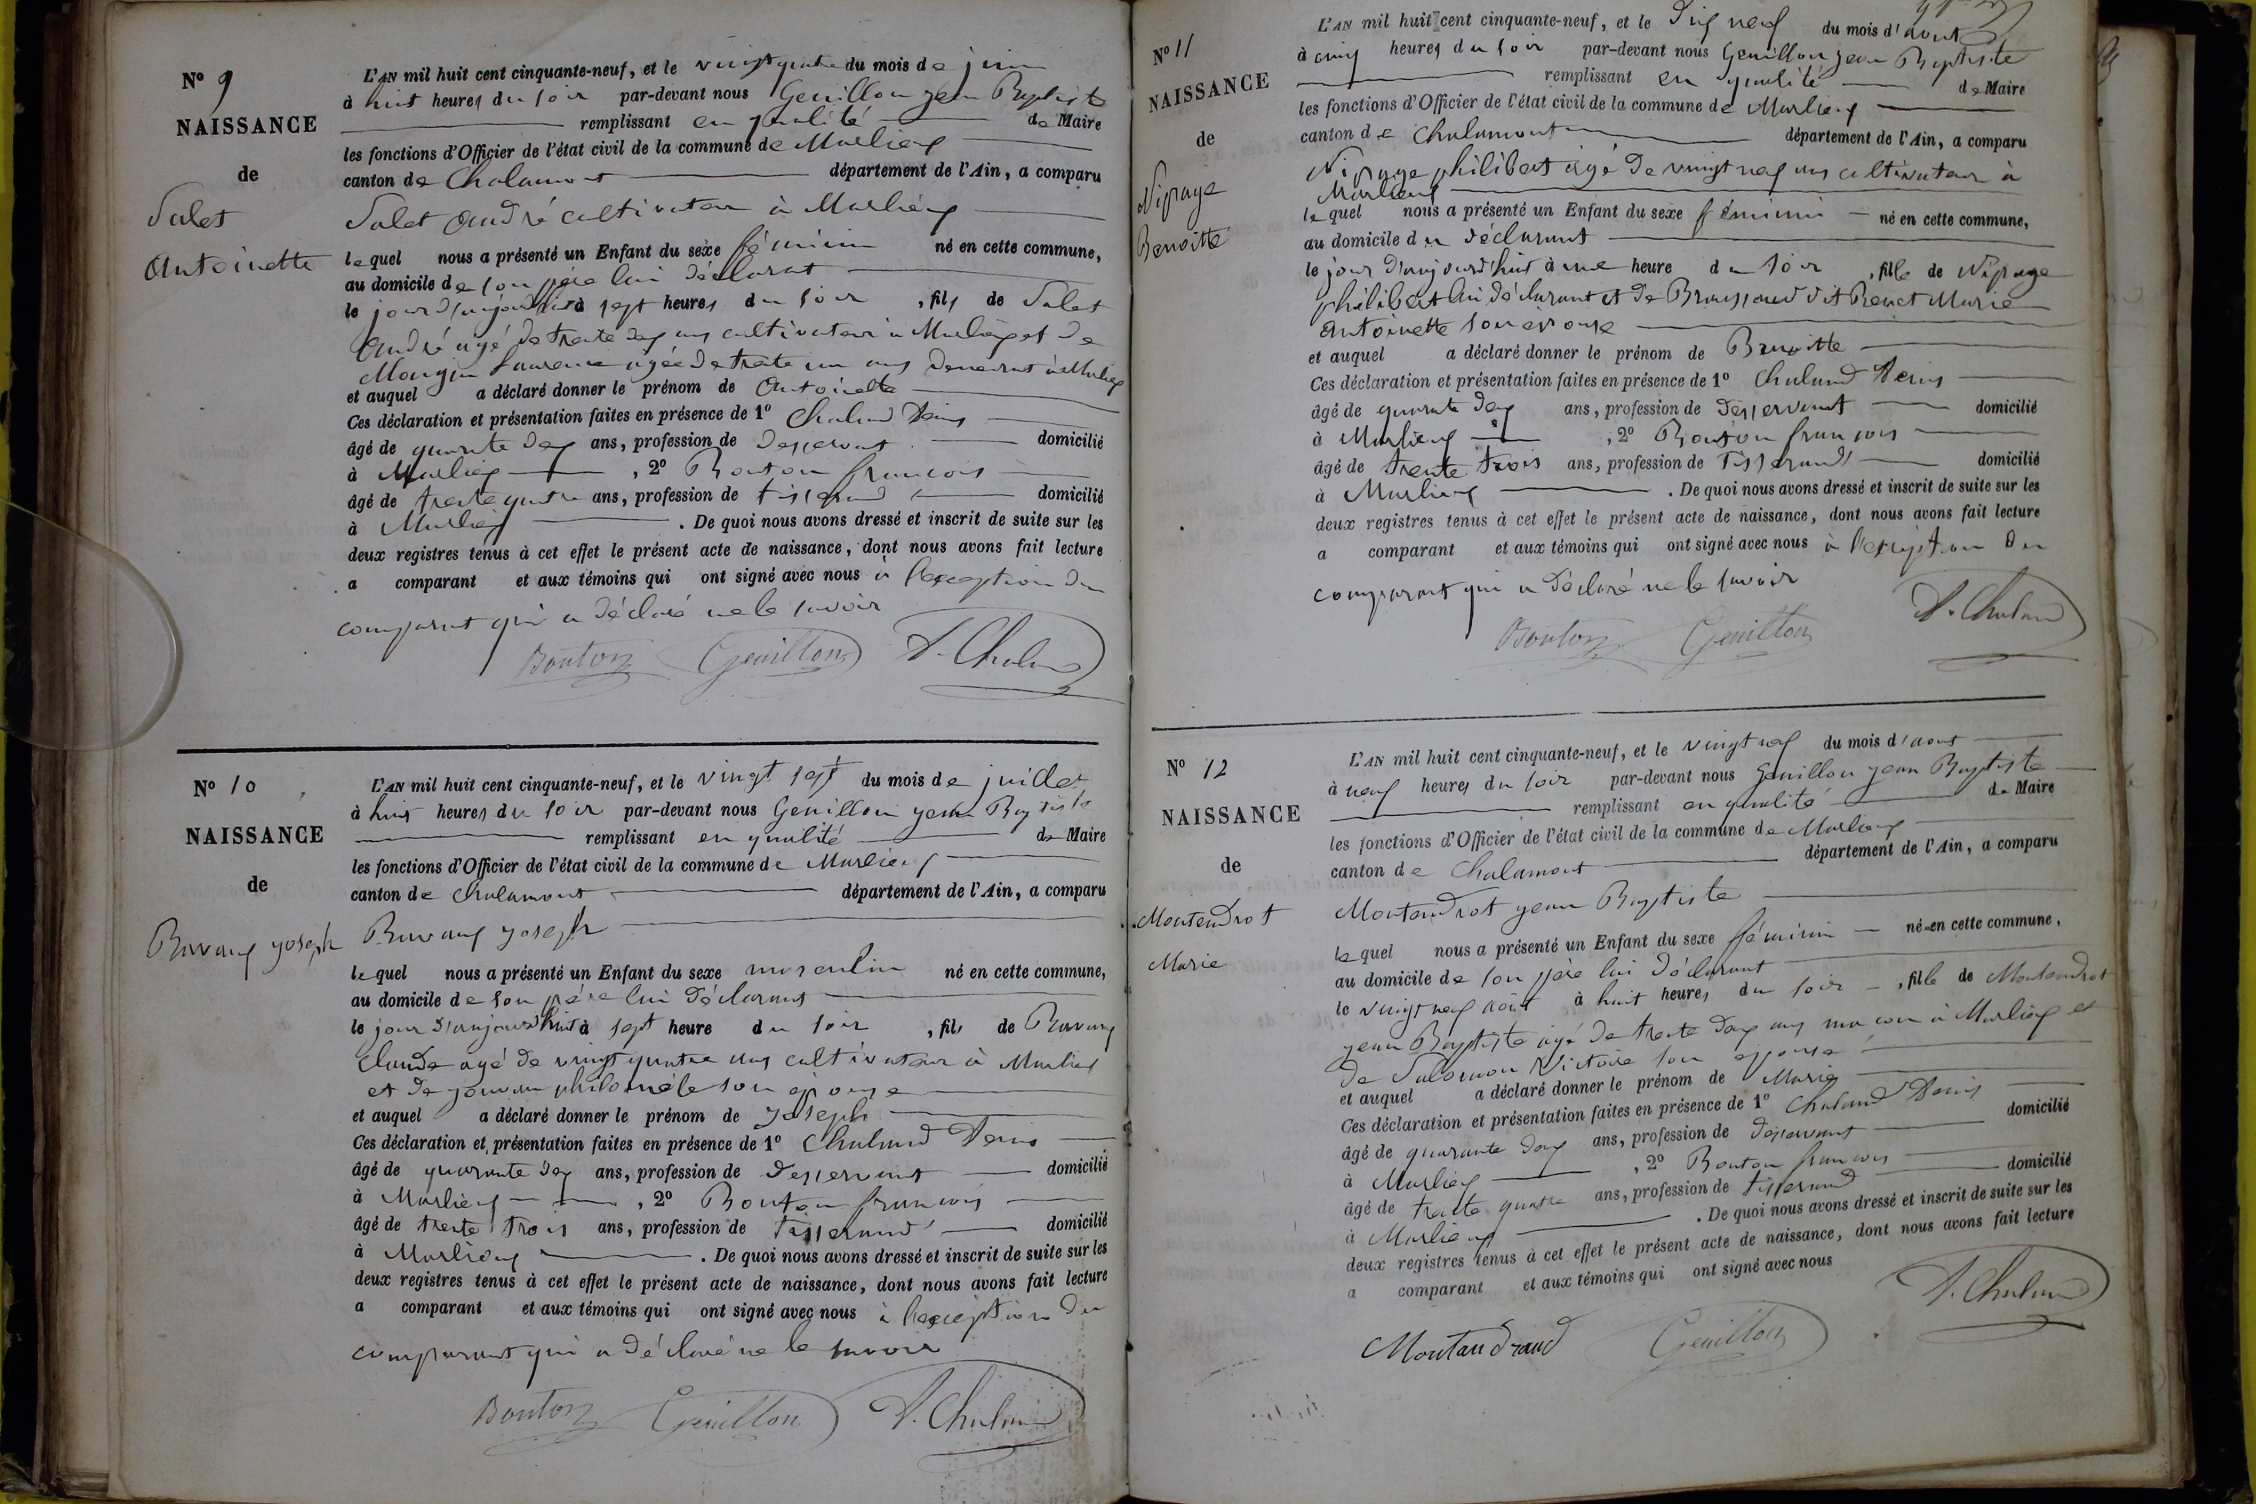 N° 9
NAISSANCE
de
Salet
Antoinette
L'AN mil huit cent cinquante-neuf, et le vingt quatre du mois de juin
à huit heures du soir par-devant nous Genillon jean Baptiste
remplissant en qualité de Maire
les fonctions d'Officier de l'état civil de la commune de Marlieux
canton de Chalamont département de l'Ain, a comparu
Salet andré cultivateur à Marlieux
lequel nous a présenté un Enfant du sexe féminin né en cette commune,
au domicile de son père lui déclarant
le jour d'aujourdhui à sept heures du soir, fils de Salet
andré agé de trente deux ans cultivateur à Marlieux et de
Mangin Laurence agée de trente un ans demeurant à Marlieux
et auquel a déclaré donner le prénom de Antoinette
Ces déclaration et présentation faites en présence de 1° Chaland Denis
âgé de quarante deux ans, profession de desservant domicilié
à Marlieux, 2° Bouton francois
âgé de trente quatre ans, profession de tisserand domicilié
à Marlieux. De quoi nous avons dressé et inscrit de suite sur les
deux registres tenus à cet effet le présent acte de naissance, dont nous avons fait lecture
a comparant et aux témoins qui ont signé avec nous à l'exception du
comparant qui a déclaré ne le savoir
Bouton Genillon D. Chaland
N° 10
NAISSANCE
de
Bavaux joseph
L'AN mil huit cent cinquante-neuf, et le vingt sept du mois de juillet
à huit heures du soir par-devant nous Genillon jean Baptiste
remplissant en qualité de Maire
les fonctions d'Officier de l'état civil de la commune de Marlieux
canton de Chalamont département de l'Ain, a comparu
Bavaux joseph
lequel nous a présenté un Enfant du sexe masculin né en cette commune,
au domicile de son père lui déclarant
le jour d'aujourdhui à sept heure du soir, fils de Bavaux
Claude agé de vingt quatre ans cultivateur à Marlieux
et de philomèle son épouse
et auquel a déclaré donner le prénom de joseph
Ces déclaration et présentation faites en présence de 1° Chaland Denis
âgé de quarante deux ans, profession de desservant domicilié
à Marlieux, 2° Bouton francois
âgé de trente trois ans, profession de tisserand domicilié
à Marlieux. De quoi nous avons dressé et inscrit de suite sur les
deux registres tenus à cet effet le présent acte de naissance, dont nous avons fait lecture
a comparant et aux témoins qui ont signé avec nous à l'exception du
comparant qui a déclaré ne le savoir
Bouton Genillon D. Chaland
N° 11
NAISSANCE
de
Nipage
Benoitte
L'AN mil huit cent cinquante-neuf, et le dix neuf du mois d'aout
à cinq heures du soir par-devant nous Genillon jean Baptiste
remplissant en qualité de Maire
les fonctions d'Officier de l'état civil de la commune de Marlieux
canton de Chalamont département de l'Ain, a comparu
Nipage philibert agé de vingt neuf ans cultivateur à
Marlieux
lequel nous a présenté un Enfant du sexe féminin né en cette commune,
au domicile du déclarant
le jour d'aujourd'huit à une heure du soir, fille de Nipage
philibert lui déclarant et de dit Marie
antoinette son épouse
et auquel a déclaré donner le prénom de Benoitte
Ces déclaration et présentation faites en présence de 1° Chaland Denis
âgé de quarante deux ans, profession de desservant domicilié
à Marlieux, 2° Bouton francois
âgé de trente trois ans, profession de tisserand domicilié
à Marlieux. De quoi nous avons dressé et inscrit de suite sur les
deux registres tenus à cet effet le présent acte de naissance, dont nous avons fait lecture
a comparant et aux témoins qui ont signé avec nous à l'exception du
comparant qui a déclaré ne le savoir
Bouton Genillon D. Chaland
N° 12
NAISSANCE
de
Montendrot
Marie
L'AN mil huit cent cinquante-neuf, et le vingt neuf du mois d'aout
à neuf heures du soir par-devant nous Genillon jean Baptiste
remplissant en qualité de Maire
les fonctions d'Officier de l'état civil de la commune de Marlieux
canton de Chalamont département de l'Ain, a comparu
Montendrot jean Baptiste
lequel nous a présenté un Enfant du sexe féminin né en cette commune,
au domicile de son père lui déclarant
le vingt neuf août à huit heures du soir, fille de Montendrot
jean Baptiste agé de trente deux ans macon à Marlieux et
de Salomon Victoire son épouse
et auquel a déclaré donner le prénom de Marie
Ces déclaration et présentation faites en présence de 1° Chaland Denis
âgé de quarante deux ans, profession de desservant domicilié
à Marlieux, 2° Bouton francois
âgé de trente quatre ans, profession de tisserand domicilié
à Marlieux. De quoi nous avons dressé et inscrit de suite sur les
deux registres tenus à cet effet le présent acte de naissance, dont nous avons fait lecture
a comparant et aux témoins qui ont signé avec nous
Montandraud Genillon D. Chaland